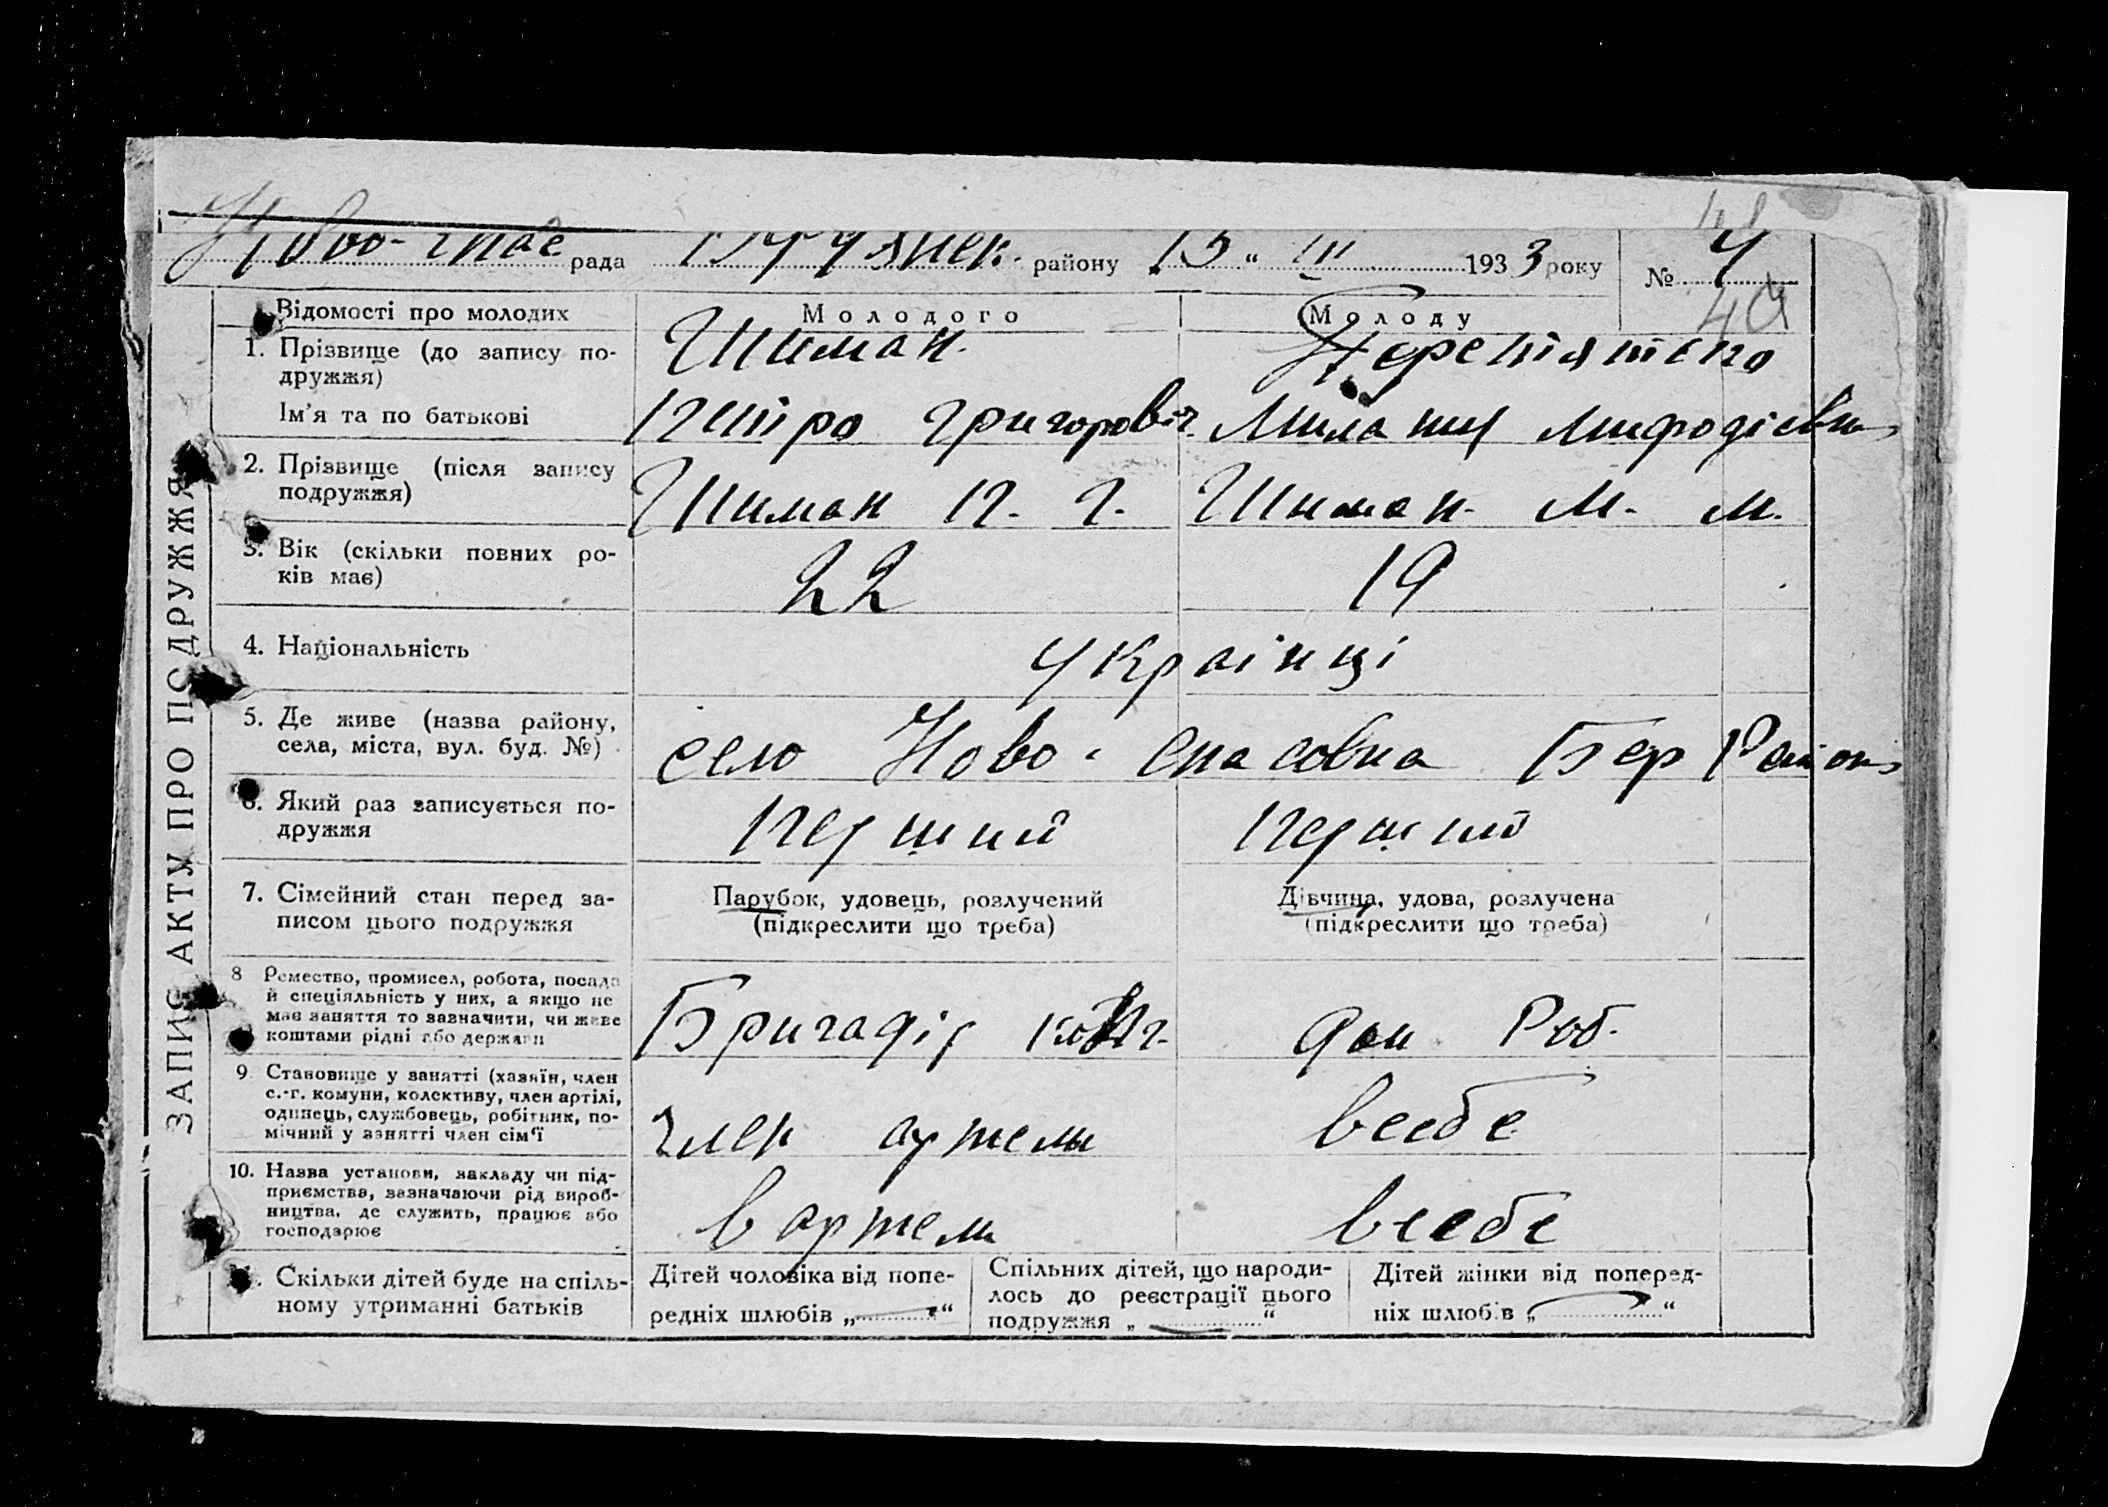 Ново-спас рада район​у 15 " III 1933 року № 4
49
Відомості про молодих Молодого Молоду
1. Прізвище (до запису по-
дружжя) Шиман
Ім'я та по батькові Петро Григорович
2. Прізвище (після запису
подружжя) Шиман П. Г. Шиман М. М.
3. Вік (скільки повних ро-
ків має) 22 19
4. Національність Украінці
5. Де живе (назва району,
села, міста, вул. буд. №) село Ново-спасовка Бер Району
6. Який раз записується по-
дружжя Перший Перший
7. Сімейний стан перед за-
писом цього подружжя
Парубок, удовець, розлучений
(підкреслити що треба)
Дівчина, удова, розлучена
(підкреслити що треба)
8 Ремество, промисел, робота, посада
й спеціяльність у них, а якщо не
має заняття то зазначити, чи живе
коштами рідні або держави
Бригадір Дом Роб.
9. Становище у занятті (хазяїн, член
с.-г. комуни, колективу, член артілі,
одинець, службовець, робітник, по-
мічний у занятті член сім'ї
член артели всебе
10. Назва установи, закладу чи під-
приємства, зазначаючи рід вироб-
ництва, де служить, працює або
господарює
в артели всебе
Скільки дітей буде на спіль-
ному утриманні батьків
Дітей чоловіка від попе-
редніх шлюбів „ — “
Спільних дітей, що народи-
лось до реєстрації цього
подружжя „ — “
Дітей жінки від поперед-
ніх шлюбів „ — “
ЗАПИС АКТУ ПРО ПОДРУЖЖЯ